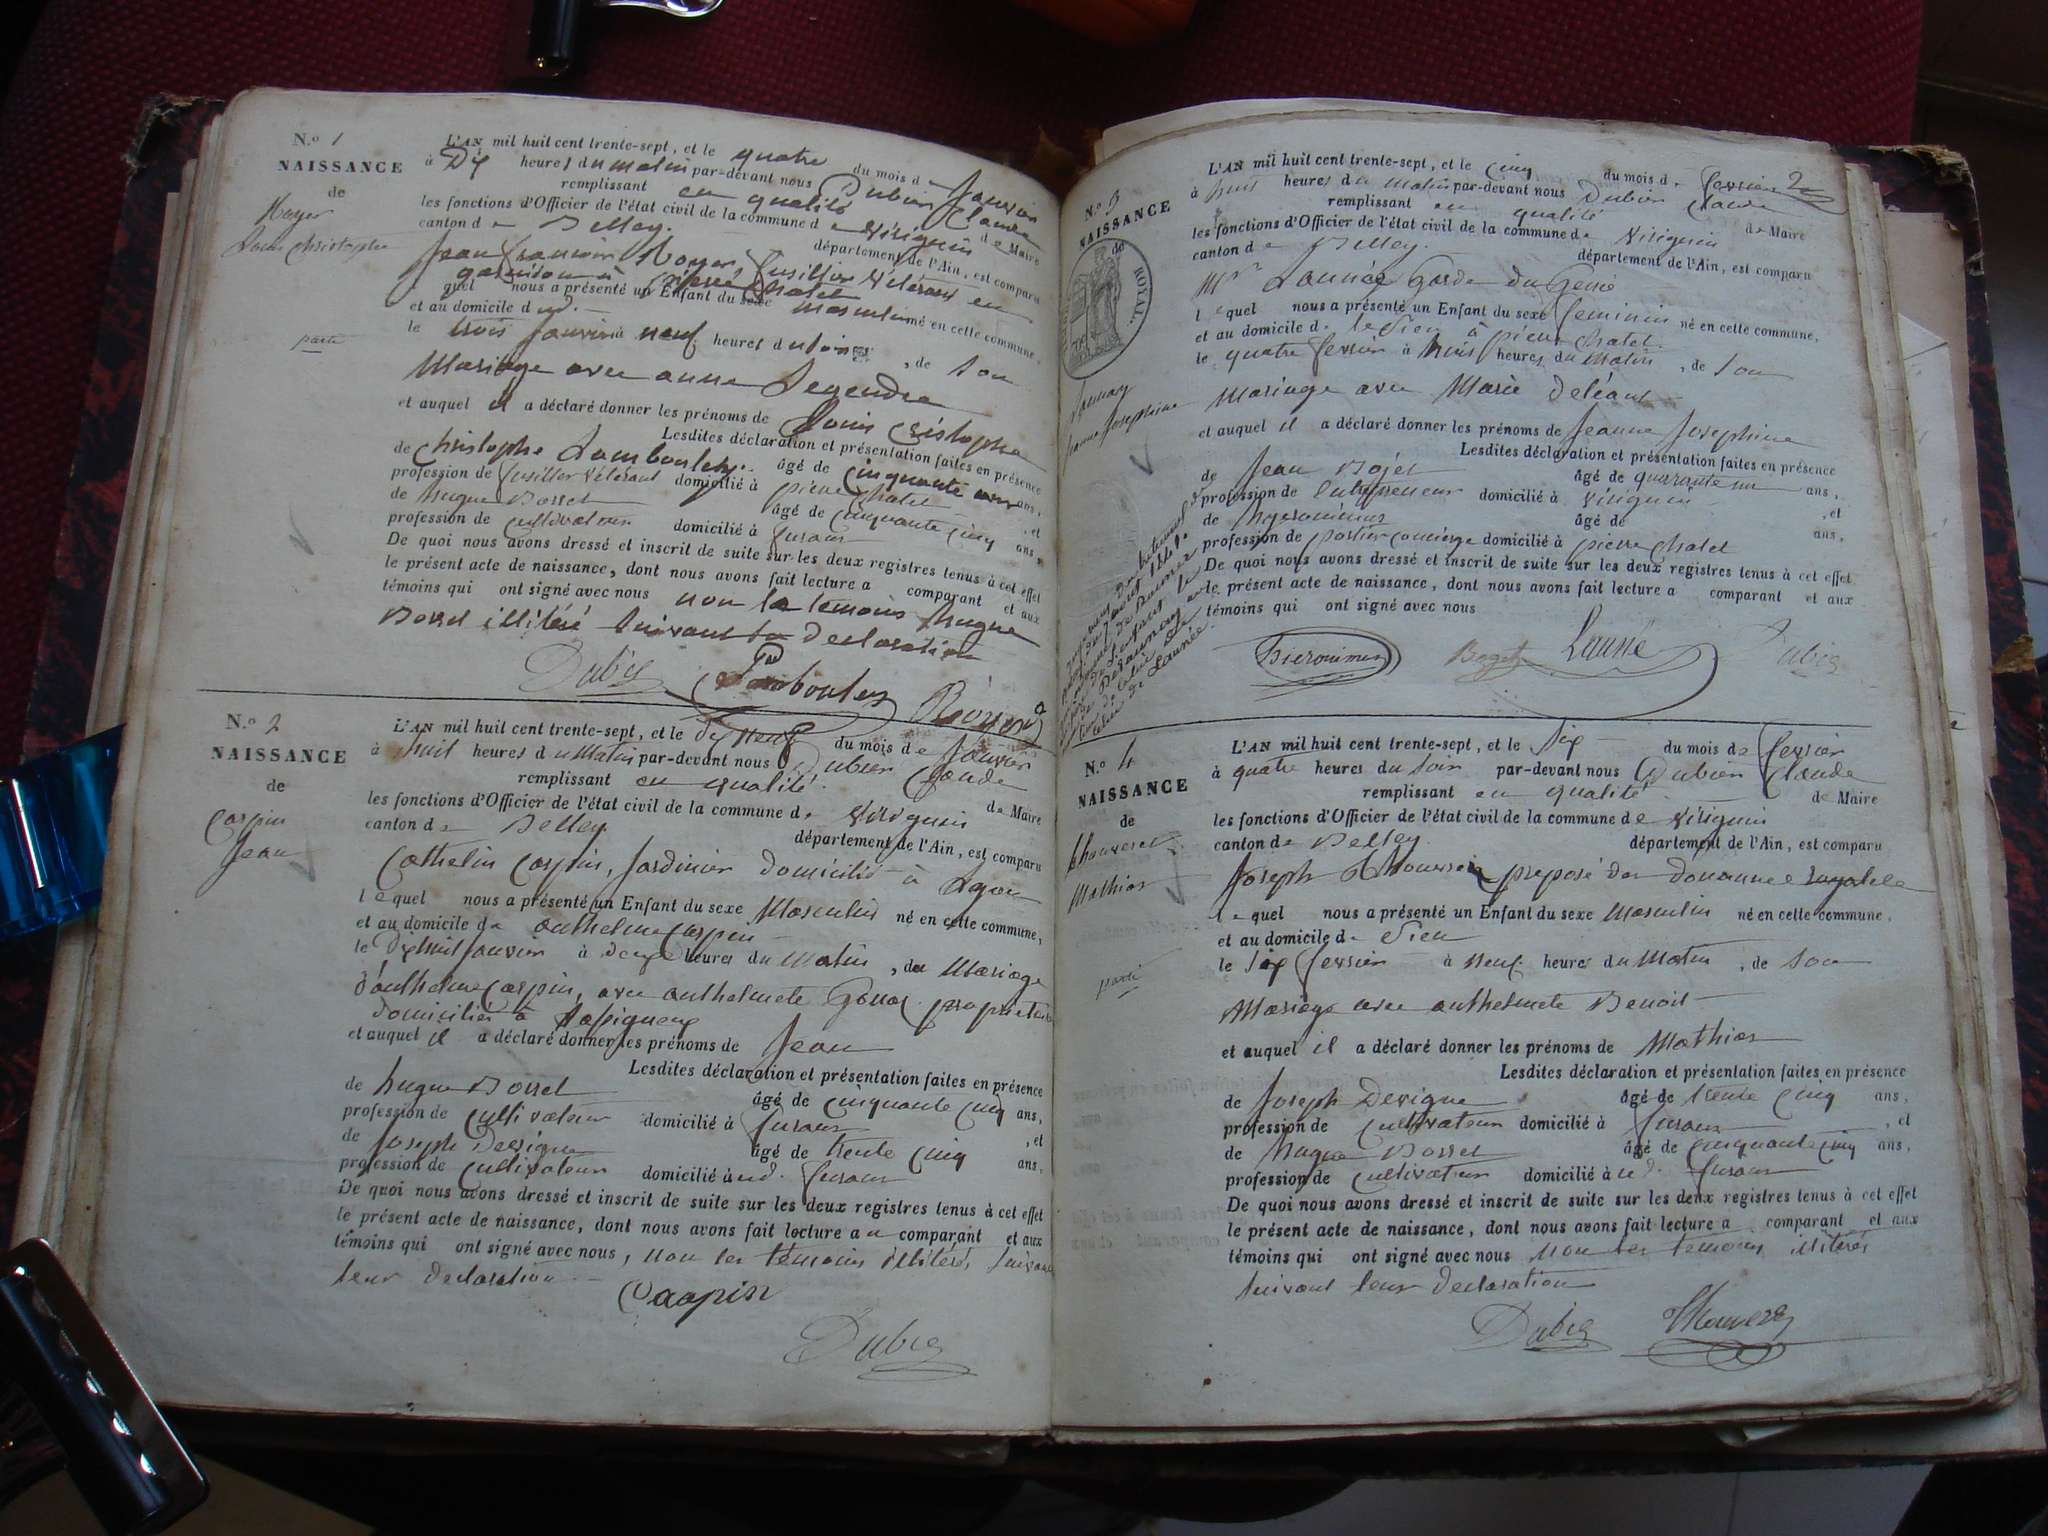 N.º 1
NAISSANCE
de
Royer
Louis Christophe
parti
L'AN mil huit cent trente-sept, et le quatre du mois de Janvier
à Dix heures du matin par-devant nous Dubier Claude
remplissant en qualité de Maire
les fonctions d'Officier de l'état civil de la commune de Virignin
canton de Belley. département de l'Ain, est comparu
Jean françois Royer fusillier vétérans en
garnison à pierre chatel
quel nous a présenté un Enfant du sexe Masculin né en cette commune,
et au domicile d ud.
le trois Janvier à neuf heures du soir , de son
Mariage avec anne Legendre
et auquel il a déclaré donner les prénoms de Louis Cristophe
Lesdites déclaration et présentation faites en présence
de Christophe Lambouley âgé de cinquante ans,
profession de fusillier vétérant domicilié à pierre chatel , et
de hugue Bosset âgé de cinquante cinq ans,
profession de cultivateur domicilié à fusaux
De quoi nous avons dressé et inscrit de suite sur les deux registres tenus à cet effet
le présent acte de naissance, dont nous avons fait lecture a comparant et aux
témoins qui ont signé avec nous non le temoins hugue
Bosset illitéré suivant sa declaration
Dubier Lambouley Royer
N.º 2
NAISSANCE
de
Carpin
Jean
L'AN mil huit cent trente-sept, et le dix neuf du mois de Janvier
à huit heures du Matin par-devant nous Dubier Claude
remplissant en qualité de Maire
les fonctions d'Officier de l'état civil de la commune de Virignin
canton de Belley. département de l'Ain, est comparu
Cathelin Carpin, Jardinier domicilié à Lyon
lequel nous a présenté un Enfant du sexe Masculin né en cette commune,
et au domicile de anthelme Carpin
le dix huit Janvier à deux heures du Matin , du Mariage
d'anthelme Carpin, avec anthelmete proprietaires
domiciliés à
et auquel il a déclaré donner les prénoms de Jean
Lesdites déclaration et présentation faites en présence
de hugue Bosset âgé de cinquante cinq ans,
profession de cultivateur domicilié à fusaux , et
de Joseph Dervigue âgé de trente cinq ans,
profession de cultivateur domicilié à ud. fusaux
De quoi nous avons dressé et inscrit de suite sur les deux registres tenus à cet effet
le présent acte de naissance, dont nous avons fait lecture au comparant et aux
témoins qui ont signé avec nous, non les témoins illitérés, suivant
leur declaration
Carpin
Dubier
2
N.º 3
NAISSANCE
de
ROYAL
Launay
Jeanne Josephine
L'AN mil huit cent trente-sept, et le cinq du mois de fevrier
à huit heures du Matin par-devant nous Dubier Claude
remplissant en qualité de Maire
les fonctions d'Officier de l'état civil de la commune de Virignin
canton de Belley. département de l'Ain, est comparu
Mr. Launée Garde du Genie
lequel nous a présenté un Enfant du sexe feminin né en cette commune,
et au domicile de le Sien à pierre chatel.
le quatre fevrier à huit heures du Matin , de son
Mariage avec Marie
et auquel il a déclaré donner les prénoms de Jeanne Josephine
Lesdites déclaration et présentation faites en présence
de Jean Bojet âgé de quarante un ans,
profession de Entrepreneur domicilié à Virignin , et
de hyeronimus âgé de ans,
profession de portier concierge domicilié à pierre chatel
De quoi nous avons dressé et inscrit de suite sur les deux registres tenus à cet effet
le présent acte de naissance, dont nous avons fait lecture a comparant et aux
témoins qui ont signé avec nous
Hieronimus Bogez Launé Dubier
N.º 4
NAISSANCE
de
Chouveret
Mathias
parti
L'AN mil huit cent trente-sept, et le Six du mois de fevrier
à quatre heures du soir par-devant nous Dubier Claude
remplissant en qualité de Maire
les fonctions d'Officier de l'état civil de la commune de Virignin
canton de Belley. département de l'Ain, est comparu
Joseph preposé des douannes
lequel nous a présenté un Enfant du sexe Masculin né en cette commune,
et au domicile de Sien
le Six fevrier à neuf heures du Matin , de son
Mariage avec anthelmete Benoit
et auquel il a déclaré donner les prénoms de Mathias
Lesdites déclaration et présentation faites en présence
de Joseph Dervigue âgé de trente cinq ans,
profession de cultivateur domicilié à fusaux , et
de hugue Bosset âgé de cinquante cinq ans,
profession de cultivateur domicilié à ud. fusaux
De quoi nous avons dressé et inscrit de suite sur les deux registres tenus à cet effet
le présent acte de naissance, dont nous avons fait lecture a comparant et aux
témoins qui ont signé avec nous non les temoins illiterés
suivant leur declaration
Dubier